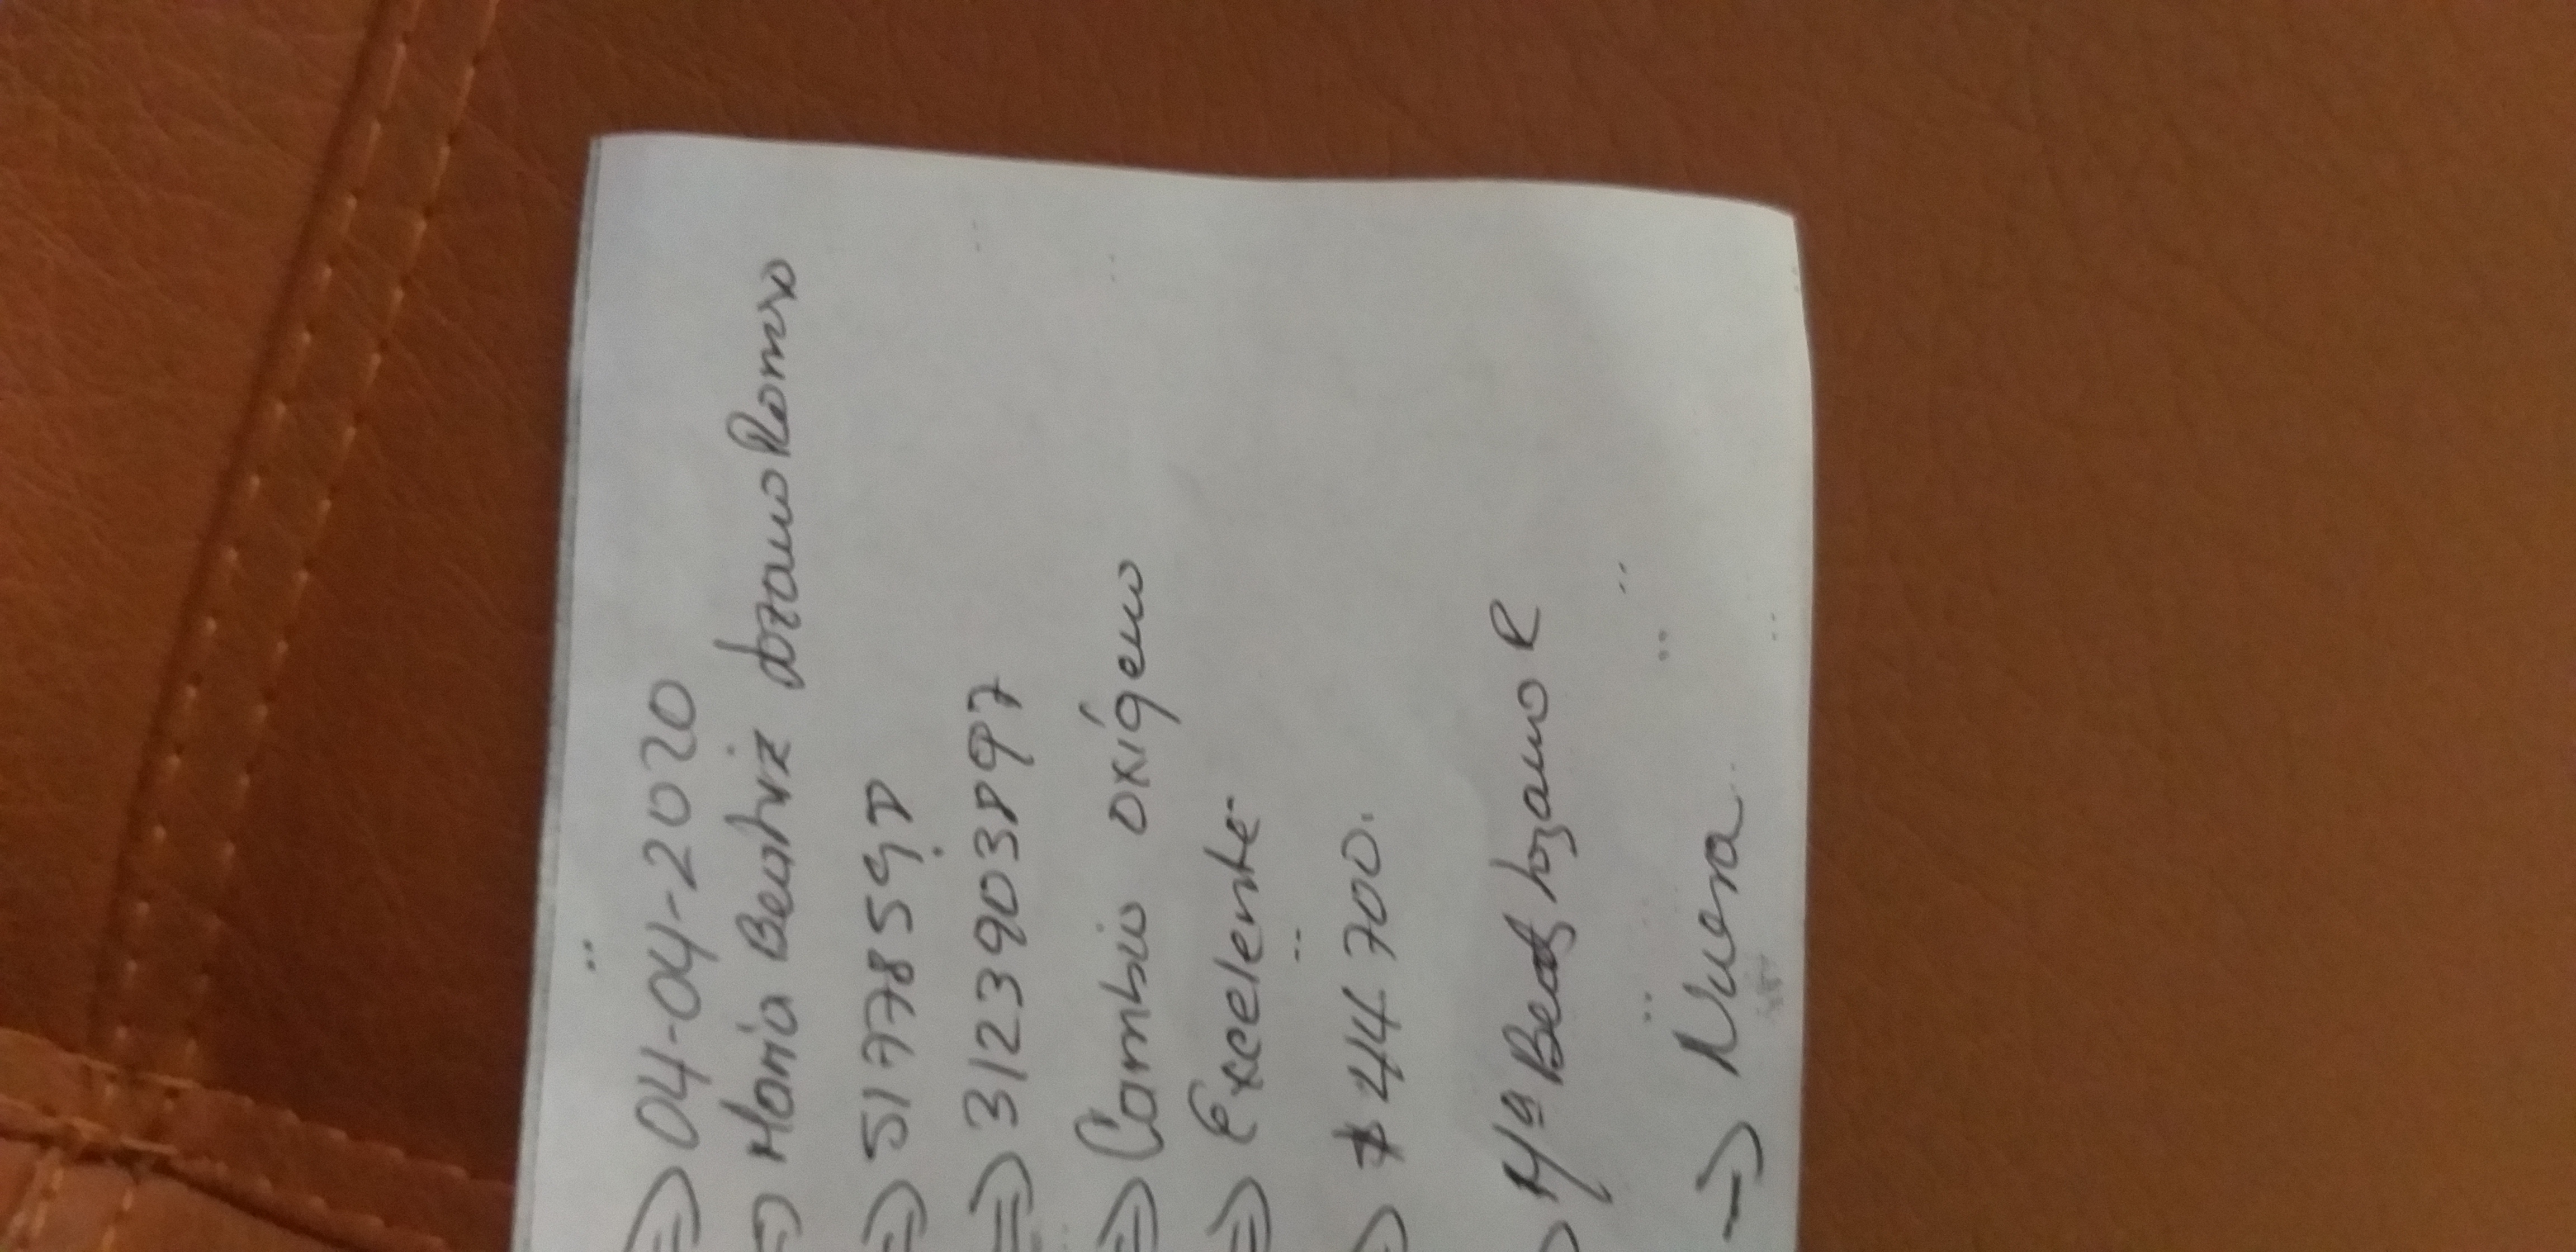 ⇒ 04-04-2020
⇒ Maria Beatriz Lozano Romero
⇒ 51778598
⇒ 3123903897
⇒ Cambio oxígeno
⇒ Excelente
⇒ $ 44 700.
⇒ Mª Beatz Lozano R
→ Nuera